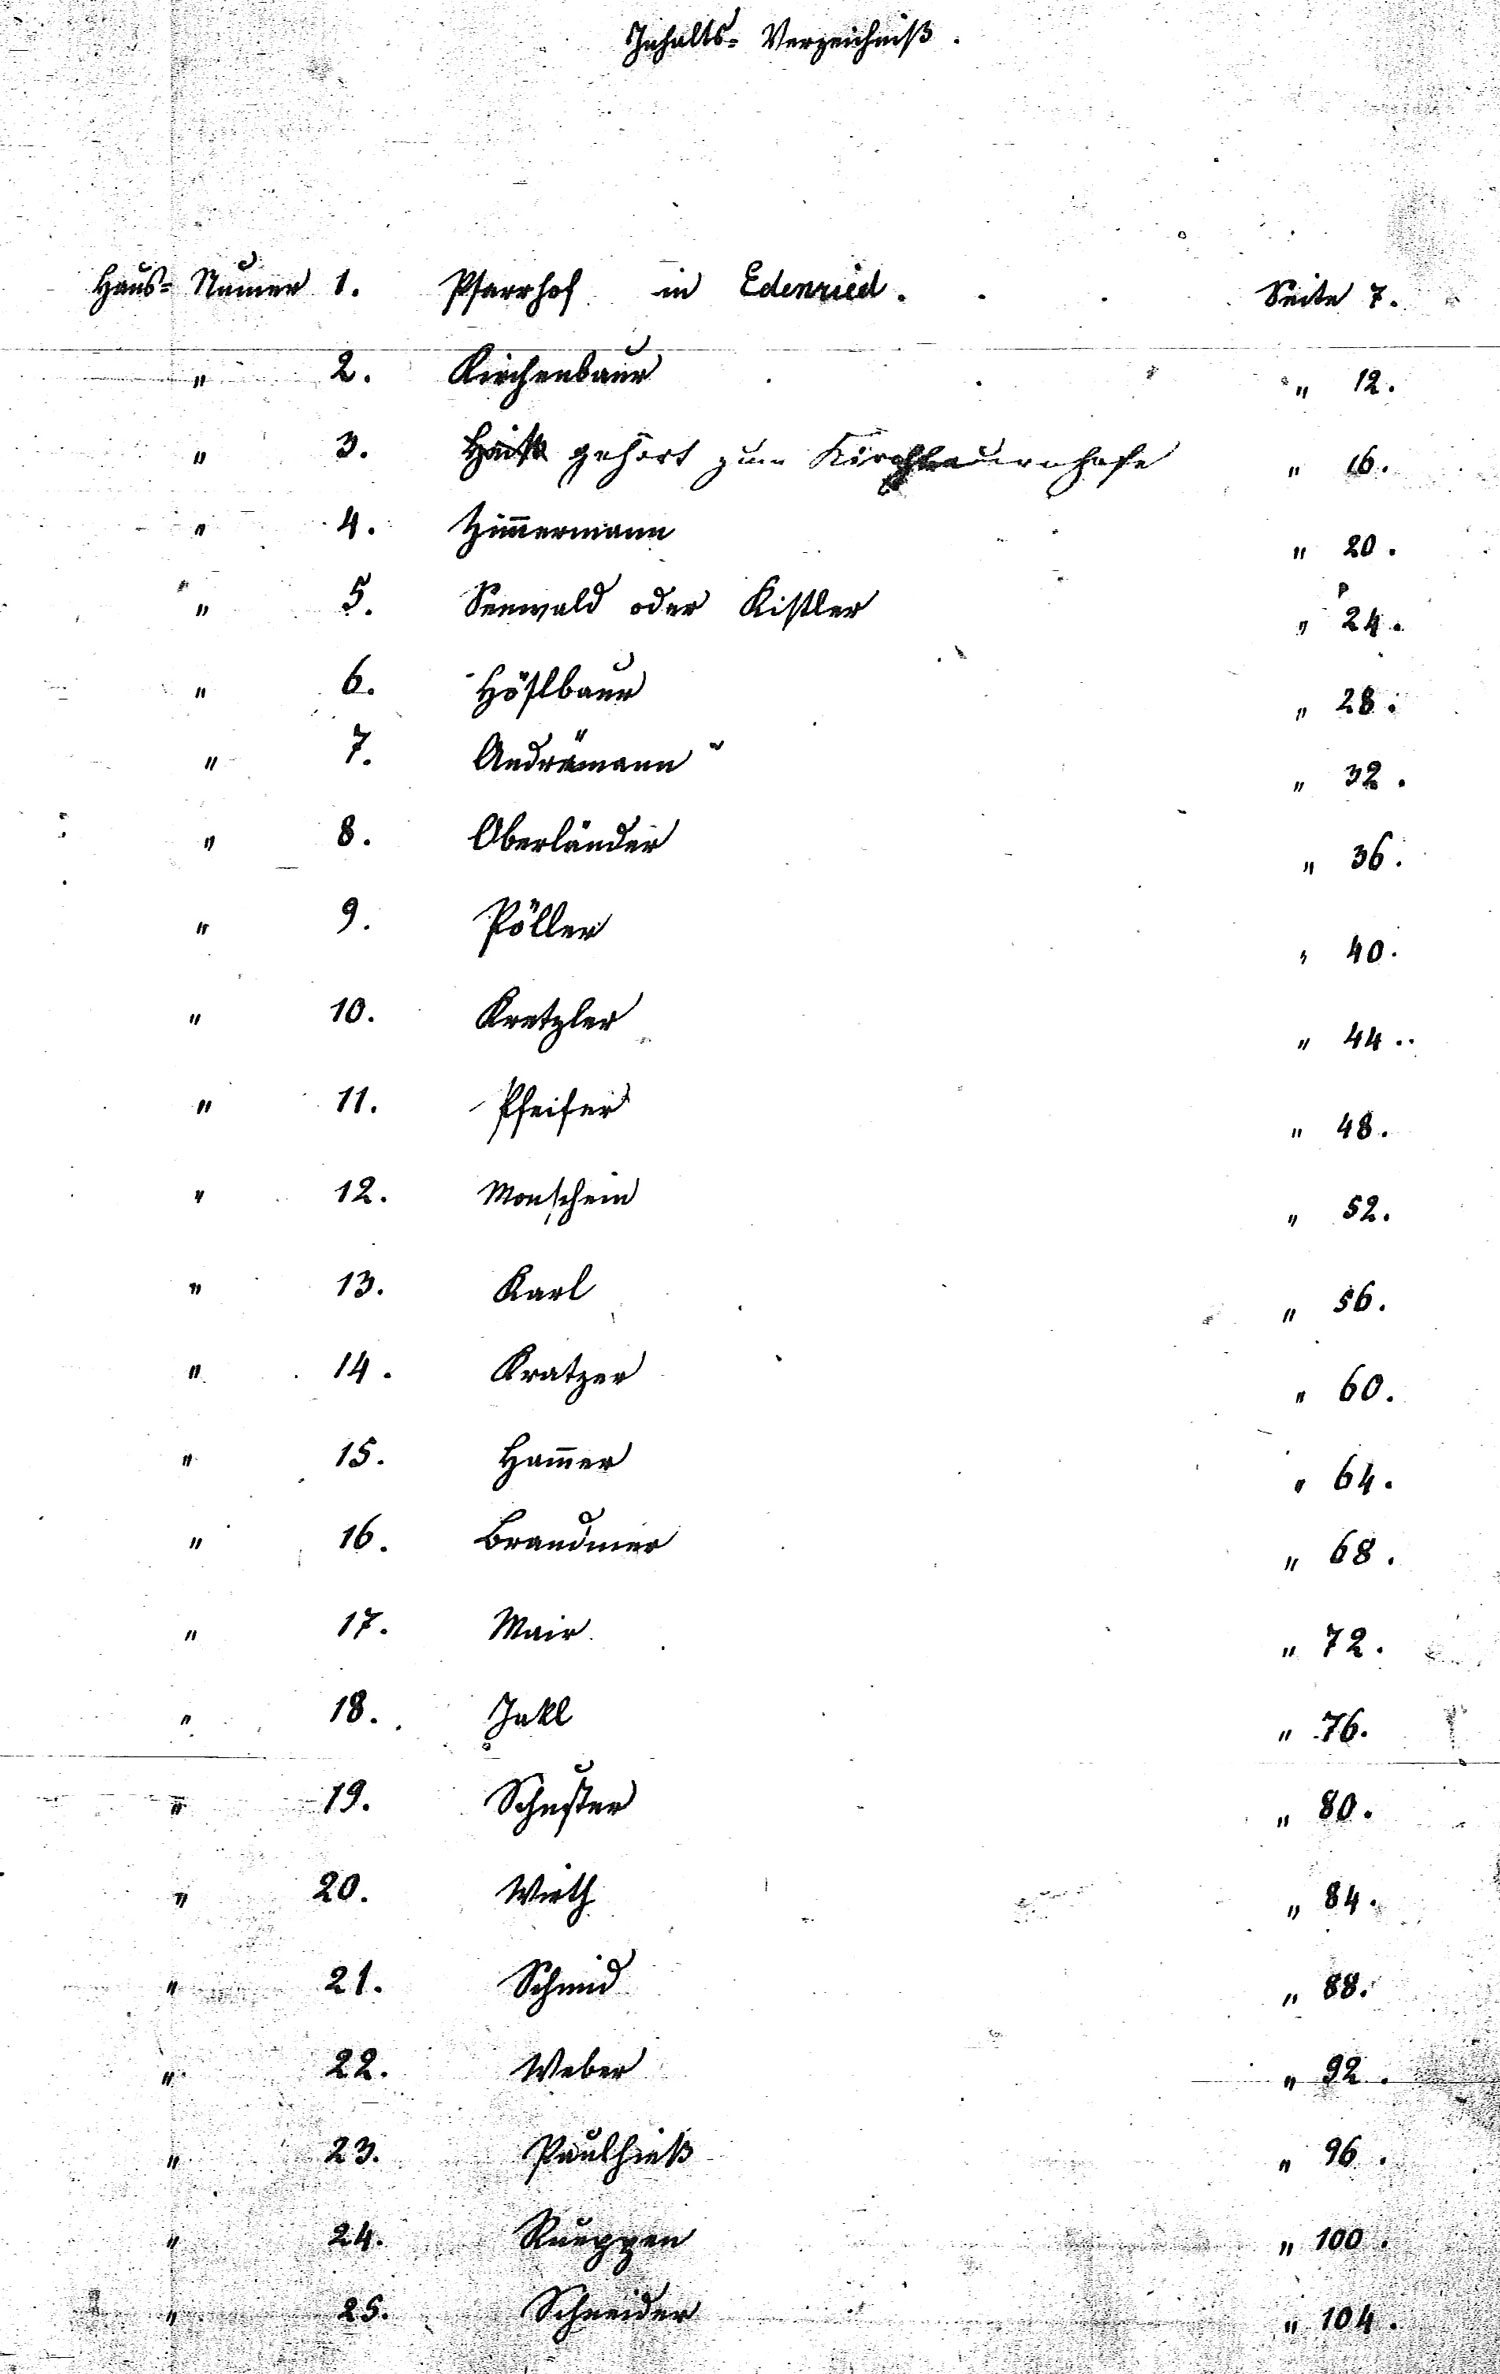 Inhalts- Verzeichniß.
Haus- Numer 1. Pfarrhof in Edenried. Seite 7.
" 2. Kirchenbaur " 12.
" 3. gehört zum Kirchbauernhofe " 16.
" 4. Zim̅ermann " 20.
" 5. Seewald oder Kistler " 24.
" 6. Höslbaur " 28.
" 7. Andrämann " 32.
" 8. Oberländer " 36.
" 9. Pöller " 40.
" 10. Kretzler " 44.
" 11. Pfeifer " 48.
" 12. Monschein " 52.
" 13. Karl " 56.
" 14. Kratzer " 60.
" 15. Ham̅er " 64.
" 16. Braudmer " 68.
" 17. Mair " 72.
" 18. Jakl " 76.
" 19. Schuster " 80.
" 20. Wirth " 84.
" 21. Schmid " 88.
" 22. Weber " 92.
" 23. Paulhieß " 96.
" 24. Rueppen " 100.
" 25. Schneider " 104.